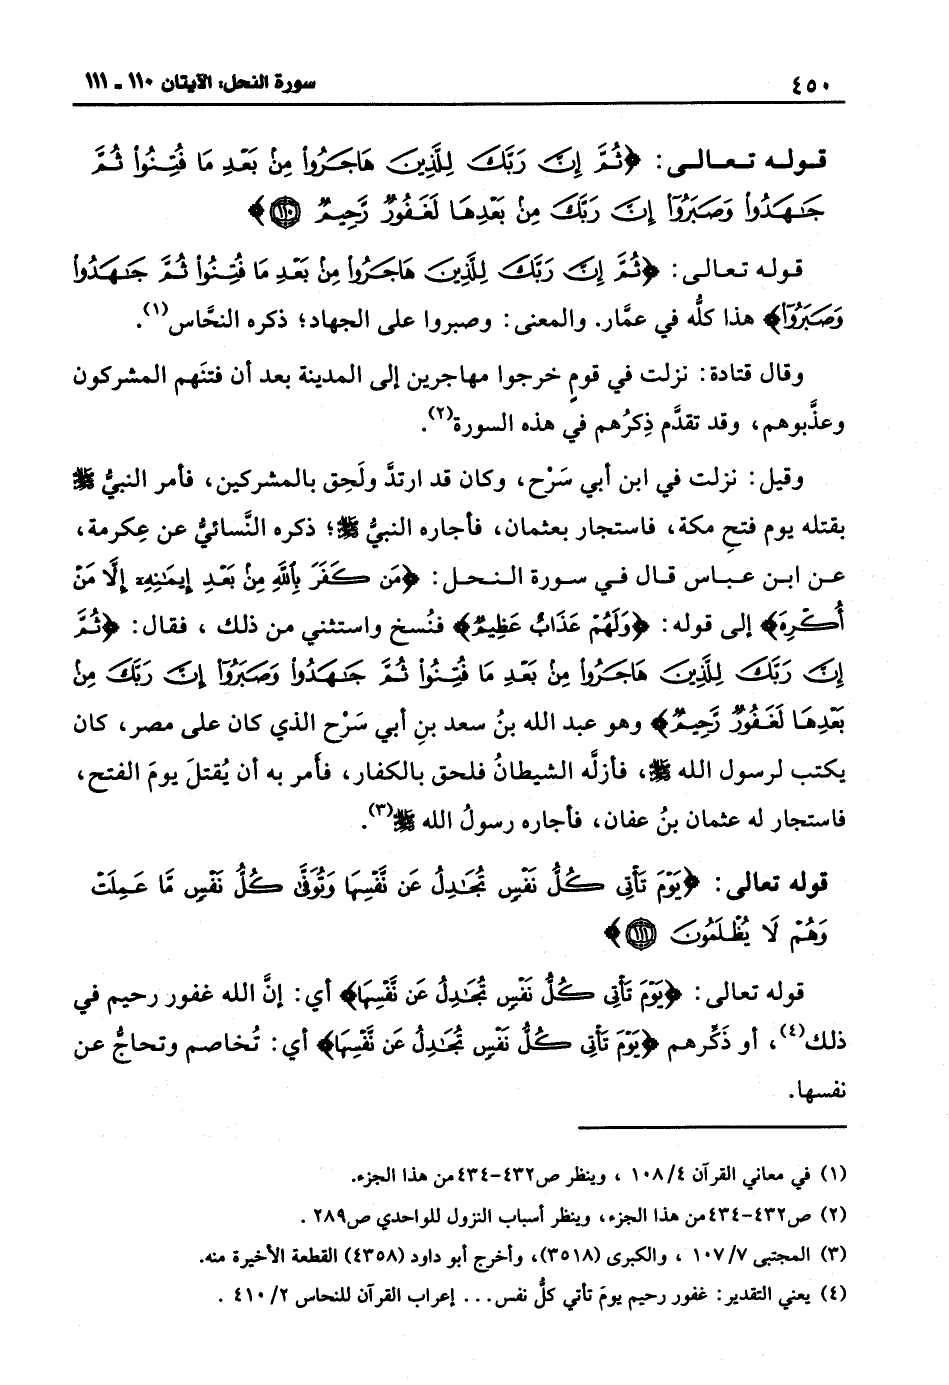 ٤٥٠ سورة النحل: الآيتان ١١٠ - ١١١
قوله تعالى: ﴿ثُمَّ إِنَّ رَبَّكَ لِلَّذِينَ هَاجَرُوا مِنْ بَعْدِ مَا فُتِنُوا ثُمَّ
جَٰهَدُوا وَصَبَرُوٓا إِنَّ رَبَّكَ مِنْ بَعْدِهَا لَغَفُورٌ رَّحِيمٌ ١١٠﴾
قوله تعالى: ﴿ثُمَّ إِنَّ رَبَّكَ لِلَّذِينَ هَاجَرُوا مِنْ بَعْدِ مَا فُتِنُوا ثُمَّ جَٰهَدُوا
وَصَبَرُوٓا﴾ هذا كلُّه في عمَّار. والمعنى: وصبروا على الجهاد؛ ذكره النحَّاس(١).
وقال قتادة: نزلت في قومٍ خرجوا مهاجرين إلى المدينة بعد أن فتنَهم المشركون
وعذَّبوهم، وقد تقدَّم ذِكرُهم في هذه السورة(٢).
وقيل: نزلت في ابن أبي سَرْح، وكان قد ارتدَّ ولَحِق بالمشركين، فأمر النبيُّ ﷺ
بقتله يوم فتحِ مكة، فاستجار بعثمان، فأجاره النبيُّ ﷺ؛ ذكره النَّسائيُّ عن عِكرمة،
عن ابن عباس قال في سورة النحل: ﴿مَن كَفَرَ بِاللَّهِ مِنْ بَعْدِ إِيمَٰنِهِۦ إِلَّا مَنْ
أُكْرِهَ﴾ إلى قوله: ﴿وَلَهُمْ عَذَابٌ عَظِيمٌ﴾ فنُسخ واستثني من ذلك ، فقال: ﴿ثُمَّ
إِنَّ رَبَّكَ لِلَّذِينَ هَاجَرُوا مِنْ بَعْدِ مَا فُتِنُوا ثُمَّ جَٰهَدُوا وَصَبَرُوٓا إِنَّ رَبَّكَ مِنْ
بَعْدِهَا لَغَفُورٌ رَّحِيمٌ﴾ وهو عبد الله بنُ سعد بنِ أبي سَرْح الذي كان على مصر، كان
يكتب لرسول الله ﷺ، فأزلَّه الشيطانُ فلحق بالكفار، فأَمر به أن يُقتلَ يومَ الفتح،
فاستجار له عثمان بنُ عفان، فأجاره رسولُ الله ﷺ(٣).
قوله تعالى: ﴿يَوْمَ تَأْتِى كُلُّ نَفْسٍ تُجَٰدِلُ عَن نَّفْسِهَا وَتُوَفَّىٰ كُلُّ نَفْسٍ مَّا عَمِلَتْ
وَهُمْ لَا يُظْلَمُونَ ١١١﴾
قوله تعالى: ﴿يَوْمَ تَأْتِى كُلُّ نَفْسٍ تُجَٰدِلُ عَن نَّفْسِهَا﴾ أي: إنَّ الله غفور رحيم في
ذلك(٤)، أو ذَكِّرهم ﴿يَوْمَ تَأْتِى كُلُّ نَفْسٍ تُجَٰدِلُ عَن نَّفْسِهَا﴾ أي: تُخاصم وتحاجُّ عن
نفسها.
(١) في معاني القرآن ١٠٨/٤ ، وينظر ص٤٣٢-٤٣٤من هذا الجزء.
(٢) ص٤٣٢-٤٣٤من هذا الجزء، وينظر أسباب النزول للواحدي ص٢٨٩ .
(٣) المجتبى ١٠٧/٧ ، والكبرى (٣٥١٨)، وأخرج أبو داود (٤٣٥٨) القطعة الأخيرة منه.
(٤) يعني التقدير: غفور رحيم يومَ تأتي كلُّ نفس... إعراب القرآن للنحاس ٤١٠/٢ .